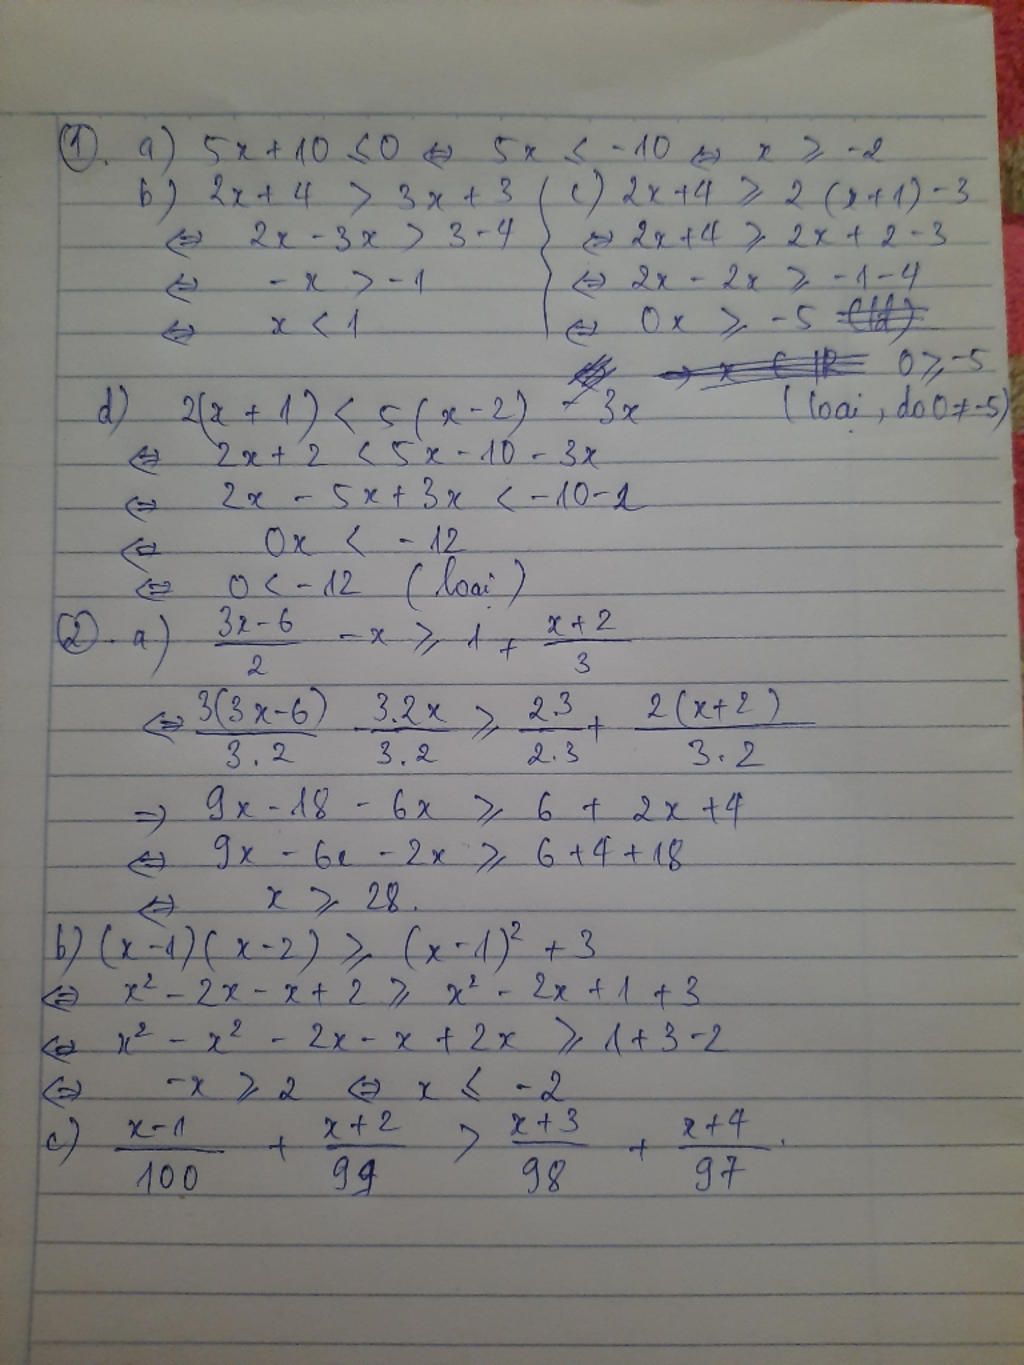 ①. a) 5x + 10 ≤ 0 ⇔ 5x ≤ -10 ⇔ x ≥ -2
b) 2x + 4 > 3x + 3
⇔ 2x - 3x > 3 - 4
⇔ -x > -1
⇔ x < 1
c) 2x + 4 ≥ 2(x+1) - 3
⇔ 2x + 4 ≥ 2x + 2 - 3
⇔ 2x - 2x ≥ -1 - 4
⇔ 0x ≥ -5
0 ≥ -5
(loại, do 0 ≠ -5)
d) 2(x + 1) < 5(x - 2) - 3x
⇔ 2x + 2 < 5x - 10 - 3x
⇔ 2x - 5x + 3x < -10 - 2
⇔ 0x < -12
⇔ 0 < -12 (loại)
②. a) \frac{3x-6}{2} - x ≥ 1 + \frac{x+2}{3}
⇔ \frac{3(3x-6)}{3.2} - \frac{3.2x}{3.2} ≥ \frac{2.3}{2.3} + \frac{2(x+2)}{3.2}
⇒ 9x - 18 - 6x ≥ 6 + 2x + 4
⇔ 9x - 6x - 2x ≥ 6 + 4 + 18
⇔ x ≥ 28.
b) (x-1)(x-2) ≥ (x-1)² + 3
⇔ x² - 2x - x + 2 ≥ x² - 2x + 1 + 3
⇔ x² - x² - 2x - x + 2x ≥ 1 + 3 - 2
⇔ -x ≥ 2 ⇔ x ≤ -2
c) \frac{x-1}{100} + \frac{x+2}{99} > \frac{x+3}{98} + \frac{x+4}{97}.